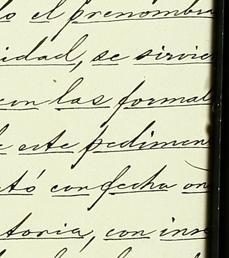 el prenombra
idad, se sirvie
con las formal
este pedimen
tó con fecha on
toria, con inse